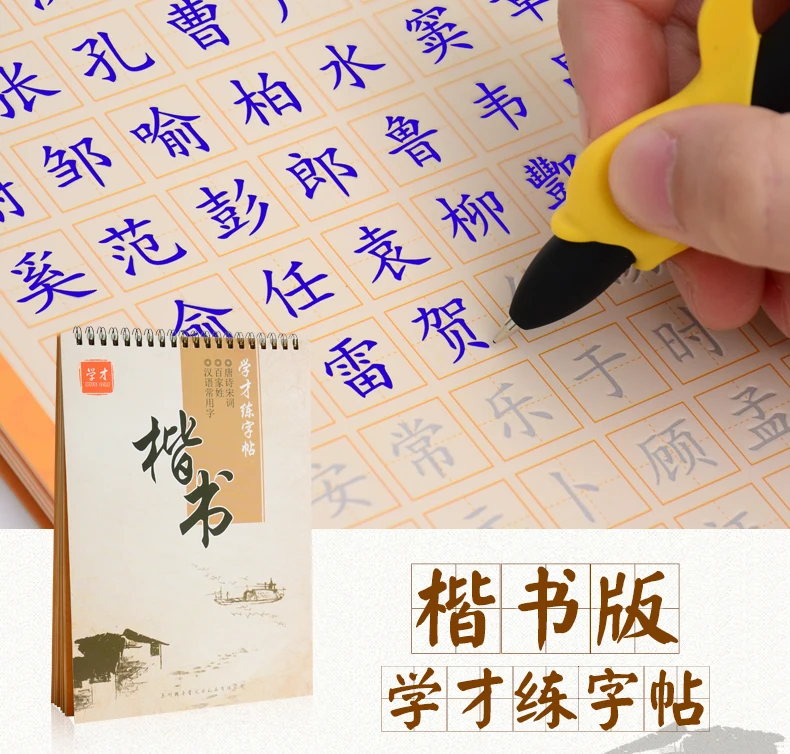 张孔曹
谢邹喻柏水窦章
奚范彭郎鲁韦
俞任袁柳酆
雷贺
安常乐于时
卜顾孟
学才
学才练字帖
唐诗宋词
百家姓
汉语常用字
楷书
楷书版
学才练字帖